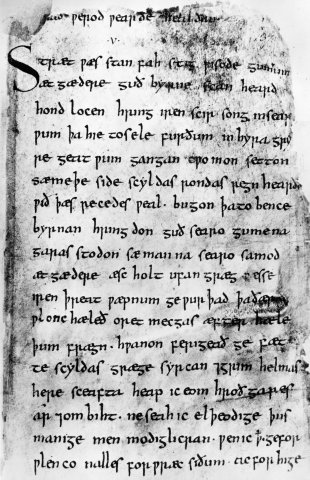 ƿerod ƿearde healdan
·V·
Stræt ƿæs stan fah stig ƿisode gumum
æt gædere guð byrne scan heard
hond locen hring iren scir song in sear
ƿum þa hie to sele furðum in hyra gry
re geat ƿum gangan cƿomon setton
sæmeþe side scyldas rondas regn hearde
ƿið þæs recedes ƿeal · bugon þa to bence
byrnan hring don guð searo gumena
garas stodon sæ manna searo samod
æt gædere æsc holt ufan græg ƿæs se
iren þreat ƿæpnum ge ƿurþad þa ðær
ƿlonc hæleð oret mecgas æfter hæle
þum frægn · hƿanon ferigeað ge fæt
te scyldas græge syrcan ⁊ grim helmas
here sceafta heap ic eom hroð gares
ar ⁊ om biht · ne seah ic el þeodige þus
manige men modiglicran · ƿen ic ꝥ ge for
ƿlenco nalles for ƿræc siðum · ac for hige